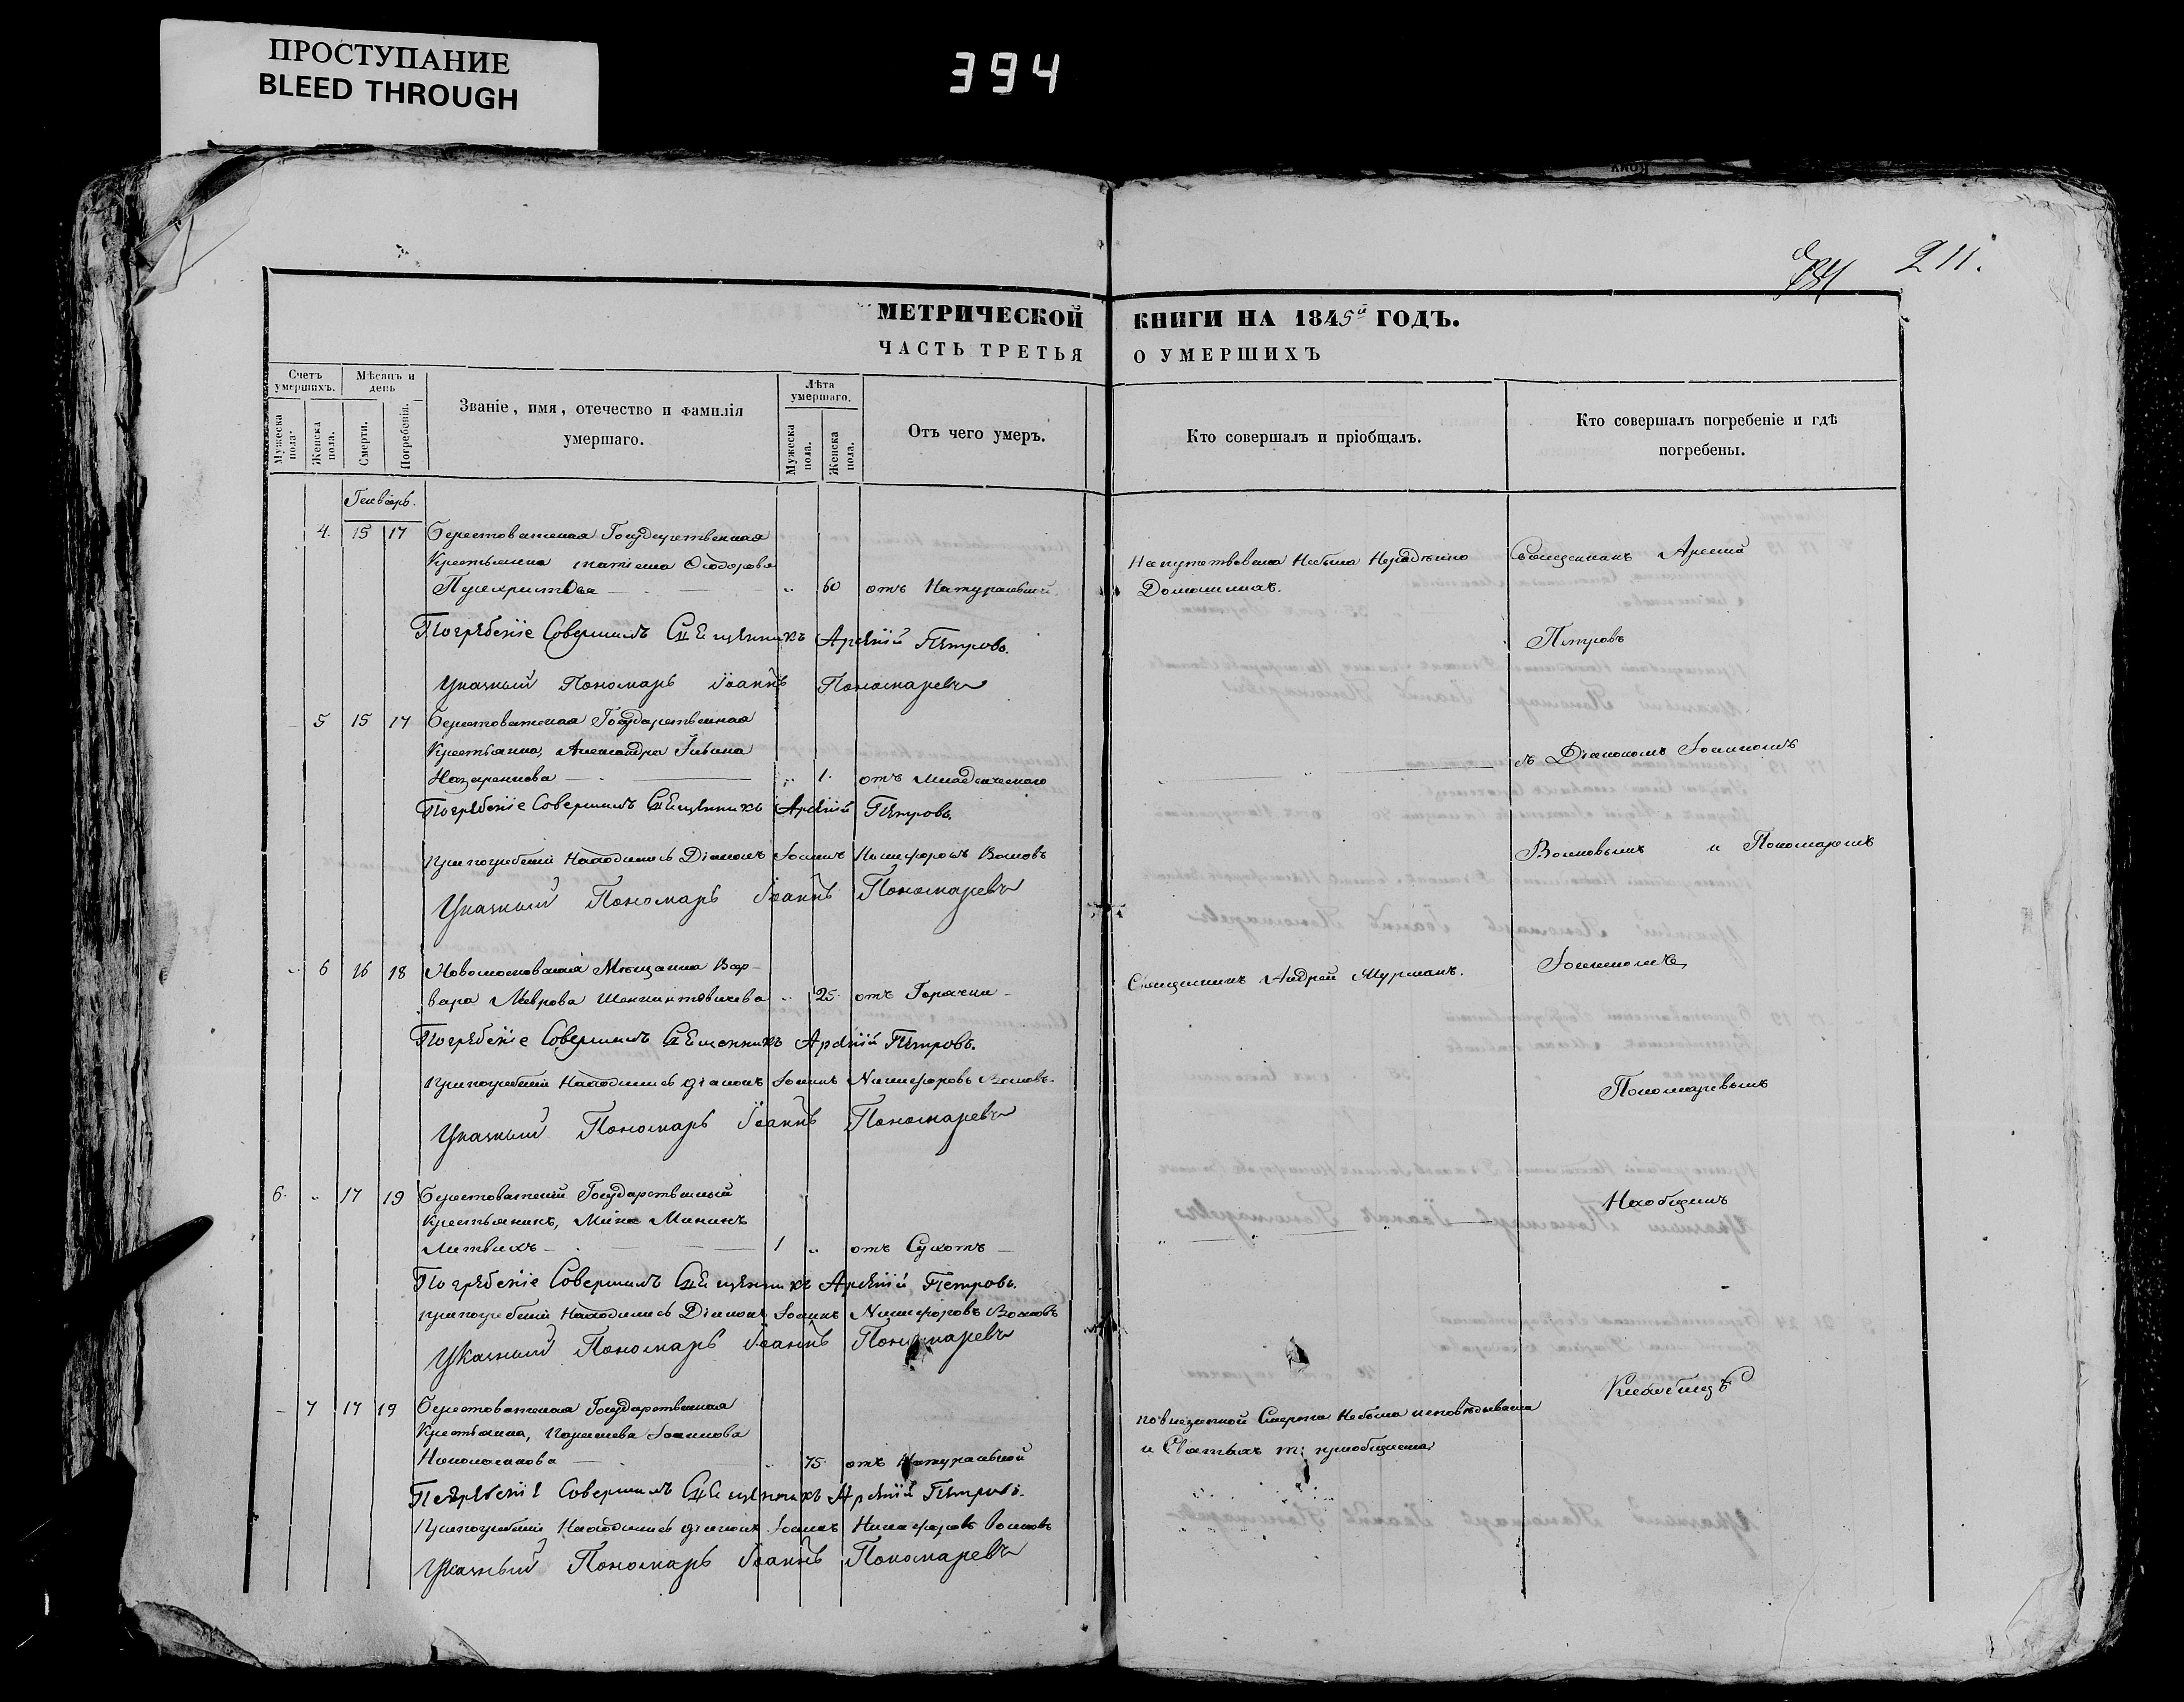 ПРОСТУПАНИЕ
BLEED THROUGH
394
211.
МЕТРИЧЕСКОЙ КНИГИ НА 1845й ГОДЪ.
ЧАСТЬ ТРЕТЬЯ О УМЕРШИХЪ
Счетъ умершихъ.
Мужеска пола.
Женска пола.
Мѣсяцъ и день
Смерти.
Погребенія.
Званіе, имя, отечество и фамилія
умершаго.
Лѣта умершаго.
Мужеска пола.
Женска пола.
Отъ чего умеръ.
Кто совершалъ и пріобщалъ.
Кто совершалъ погребеніе и гдѣ
погребены.
Генваръ.
4. 15 17 Берестоватская Государственная
Крестьянка Ѳеодорова
60 отъ Натуральной
Погребеніе Совершилъ Священникъ Арсеній Петровъ.
Указный Пономарь Іоаннъ Пономаревъ
5 15 17 Берестоватская Государственная
Крестьянка, Александра
Назаренкова 1. отъ Младенческаго
Погребеніе Совершилъ Священникъ Арсеній Петровъ.
При погребеніи Находились Діаконъ Іоаннъ Никифоровъ Волковъ
Указный Пономарь Іоаннъ Пономаревъ
6 16 18 Новомосковская Мѣщанка Вар-
вара 25 отъ Горячки
Погребеніе Совершилъ Священникъ Арсеній Петровъ.
При погребеніи Находились діаконъ Іоаннъ Никифоровъ Волковъ.
Указный Пономарь Іоаннъ Пономаревъ
6. 17 19 Берестоватскій Государственный
Крестьянинъ, Мина Мининъ
Литвихъ 1 отъ Сухотъ
Погребеніе Совершилъ Священникъ Арсеній Петровъ.
При погребеніи Находились Діаконъ Іоаннъ Никифоровъ Волковъ
Указный Пономарь Іоаннъ Пономаревъ
7 17 19 Берестоватская Государственная
Крестьянка, Іоаннова
75 отъ Натуральной
Погребеніе Совершилъ Священникъ Арсеній Петровъ.
При погребеніи Находились діаконъ Іоаннъ Никифоровъ Волковъ
Указный Пономарь Іоаннъ Пономаревъ
Напутствована Небыла
Священникъ Андрей
По внезапной Смерти Небыла исповѣдывана
и Святыхъ т: пріобщена
Священникъ Арсеній
Петровъ
съ Діакономъ Іоанномъ
Волковымъ и Пономаремъ
Іоанномъ
Пономаревымъ
На общемъ
Кладбищѣ